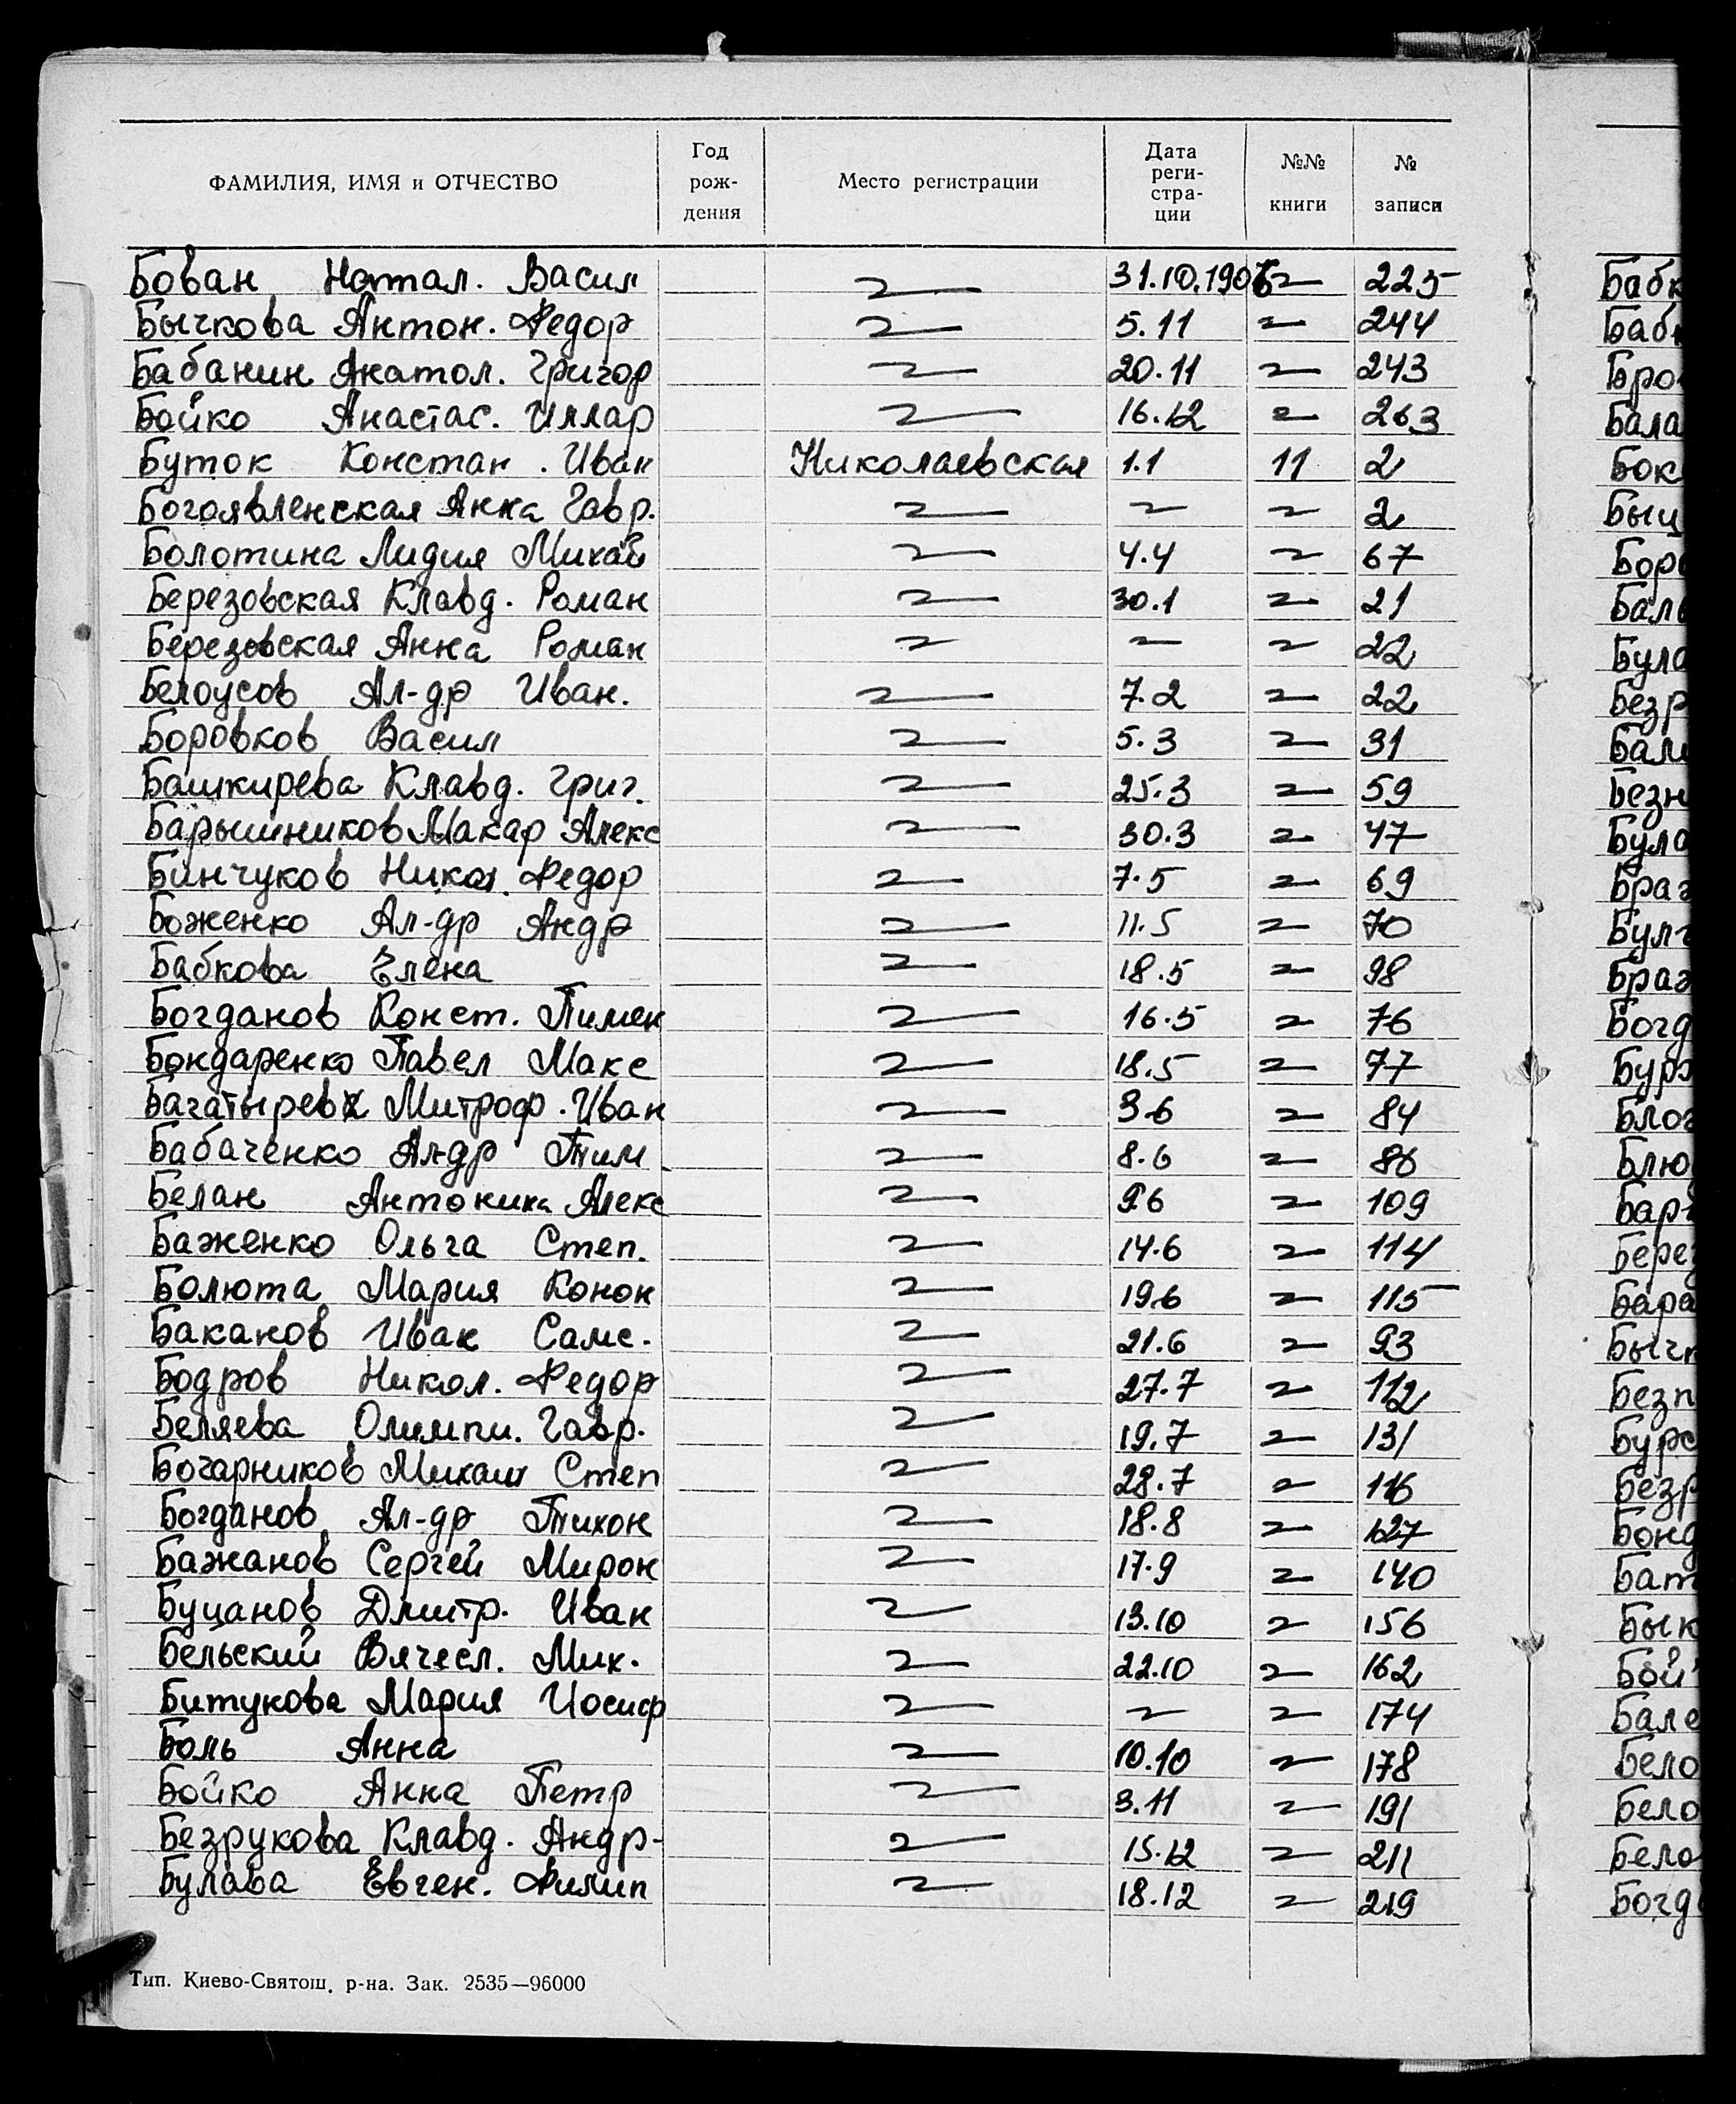 ФАМИЛИЯ, ИМЯ и ОТЧЕСТВО Год рож-дения Место регистрации Дата реги-стра-ции №№ книги № записи
Бован Натал. Васил 31.10.1906 225
Бычкова Антон. Федор 5.11 244
Бабанин Анатол. Григор 20.11 243
Бойко Анастас. Иллар 16.12 263
Буток Констан. Иван Николаевская 1.1 11 2
Богоявленская Анна Гавр. 2
Болотина Лидия Михай 4.4 67
Березовская Клавд. Роман 30.1 21
Березовская Анна Роман 22
Белоусов Ал-др Иван. 7.2 22
Боровков Васил 5.3 31
Башкирева Клавд. Григ. 25.3 59
Барышников Макар Алекс 30.3 47
Бинчуков Никол. Федор 7.5 69
Боженко Ал-др Андр 11.5 70
Бабкова Елена 18.5 98
Богданов Конст. Пимен 16.5 76
Бондаренко Павел Макс 18.5 77
Багатырев Митроф. Иван 3.6 84
Бабаченко Ал-др Тим. 8.6 86
Белан Антонина Алекс 9.6 109
Баженко Ольга Степ. 14.6 114
Болюта Мария Конон 19.6 115
Баканов Иван Самс. 21.6 93
Бодров Никол. Федор 27.7 112
Беляева Олимпи. Гавр. 19.7 131
Богарников Михаил Степ 28.7 116
Богданов Ал-др Тихон 18.8 127
Бажанов Сергей Мирон 17.9 140
Буцанов Дмитр. Иван 13.10 156
Бельский Вячесл. Мих. 22.10 162
Битукова Мария Иосиф 174
Боль Анна 10.10 178
Бойко Анна Петр 3.11 191
Безрукова Клавд. Андр- 15.12 211
Булава Евген. Филип 18.12 219
Тип. Киево-Святош. р-на. Зак. 2535—96000